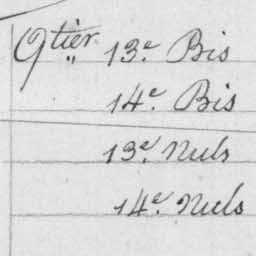 Qtier 13e. Bis
14e. Bis
13e. Nuls
14e. Nuls